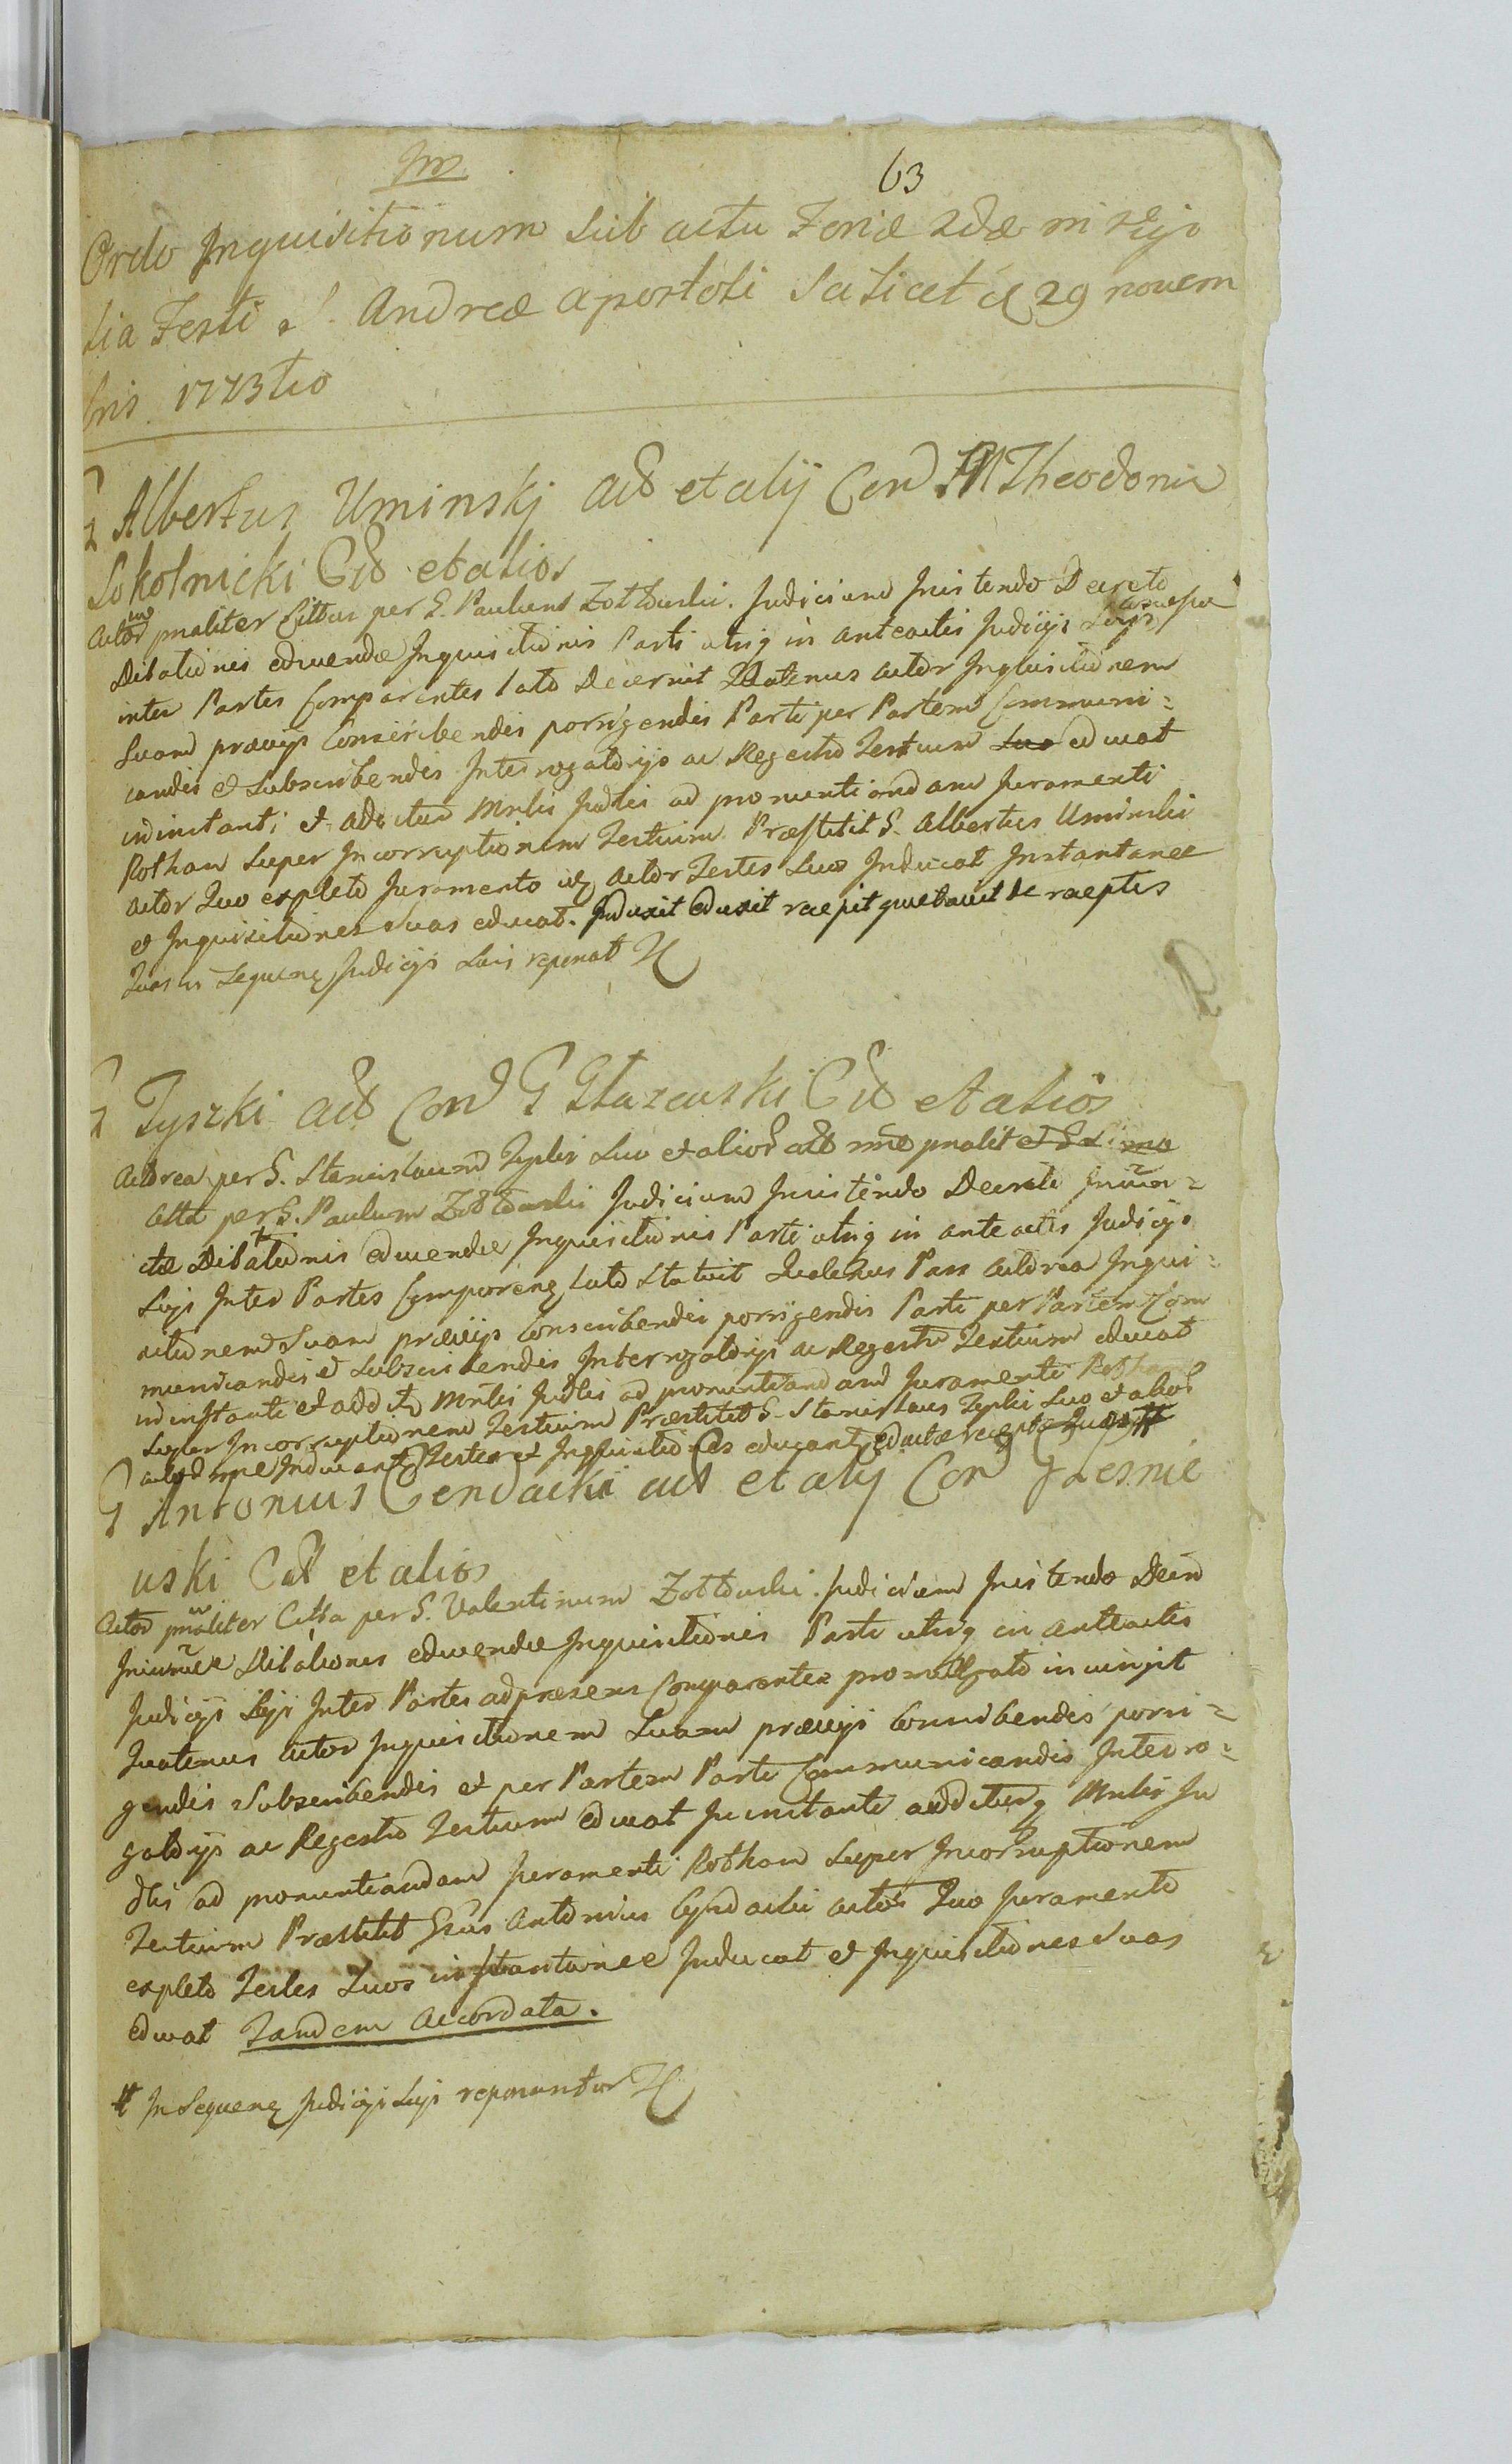 Jm
63
Ordo Inquisitionum sub actu Feriæ 2dæ in Vigi
lia Festi S. Andreæ Apostoli scilicet d 29 novem
bris 1773tio
G Albertus Uminskj Act et alij Con M Theodorū
Sokolnicki Citt et alios
Actor pnaliter Cittus per G. Paulum Zołtowski. Judicium Insistendo Decreto
Dilationis educendæ Inquisitionis Parti utriq in anteactis Judicijs Suis
inter Partes Comparentes lato Decernit Quatenus Actor Inquisitionem
Suam prævijs Conscribendis porrigendis Parti per Partem Communi=
candis et Subscribendis Interrogatorijs ac Regestro Testium educat
in instanti et additur Mnlis Judlis ad pronuntiandam Juramenti
Rotham Super Incorruptionem Testium Præstitit G. Albertus Uminski
Actor Quo expleto Juramento idq Actor Testes Suos Inducat Instantanee
et Inquisitiones Suas educat. Induxit eduxit recepit quietavit de receptis
Quas in Sequenq Judicijs Suis reponat
G Tyszki Act Con G Stazewski Citt et alios
Actorea per G. Stanislaum Tyszki Suo et aliorū Act nne pnalit
Citta per G. Paulum Zołtowski Judicium Insistendo Decreto
Dilationis educendæ Inquisitionis Parti utriq in anteactis Judicijs
Suis Inter Partes Comparenq lato Statuit Quatenus Pars Actorea Inqui=
sitionem Suam prævijs Conscribendis porrigendis Parti per Partem Com
municandis et Subscribendis Interrogatorijs ac Regestro Testium educat
in instanti et addit Mnlis Judlis ad pronuntiandam Juramenti Rotham
Super Incorruptionem Testium Præstitit G. Stanislaus Tyszki Suo et alior
Act nne Inducant Testes et Inquisitiones educant eductæ receptæ #
G Antonius Cendacki Act et alij Con G Lesnie
wski Citt et alios
Actor pnaliter Citta per G. Valentinum Zołtowski. Judicium Insistendo Decro
Dilationis educendæ Inquisitionis Parti utriq in anteactis
Judicijs Suis Inter Partes ad præsens Comparentes promulgato injungit
Quatenus Actor Inquisitionem Suam prævijs Conscribendis porri=
gendis Subscribendis et per Partem Parti Communicandis Interro=
gatorijs ac Regestro Testium educat in instanti additurq Mnlis Ju
dlis ad pronuntiandam Juramenti Rotham Super Incorruptionem
Testium Præstitit Gsus Antonius Cendacki Actor Quo Juramento
expleto Testes Suos instantanee Inducat et Inquisitiones Suas
educat Tandem Accordata.
# In Sequenq Judicijs Suis reponantur